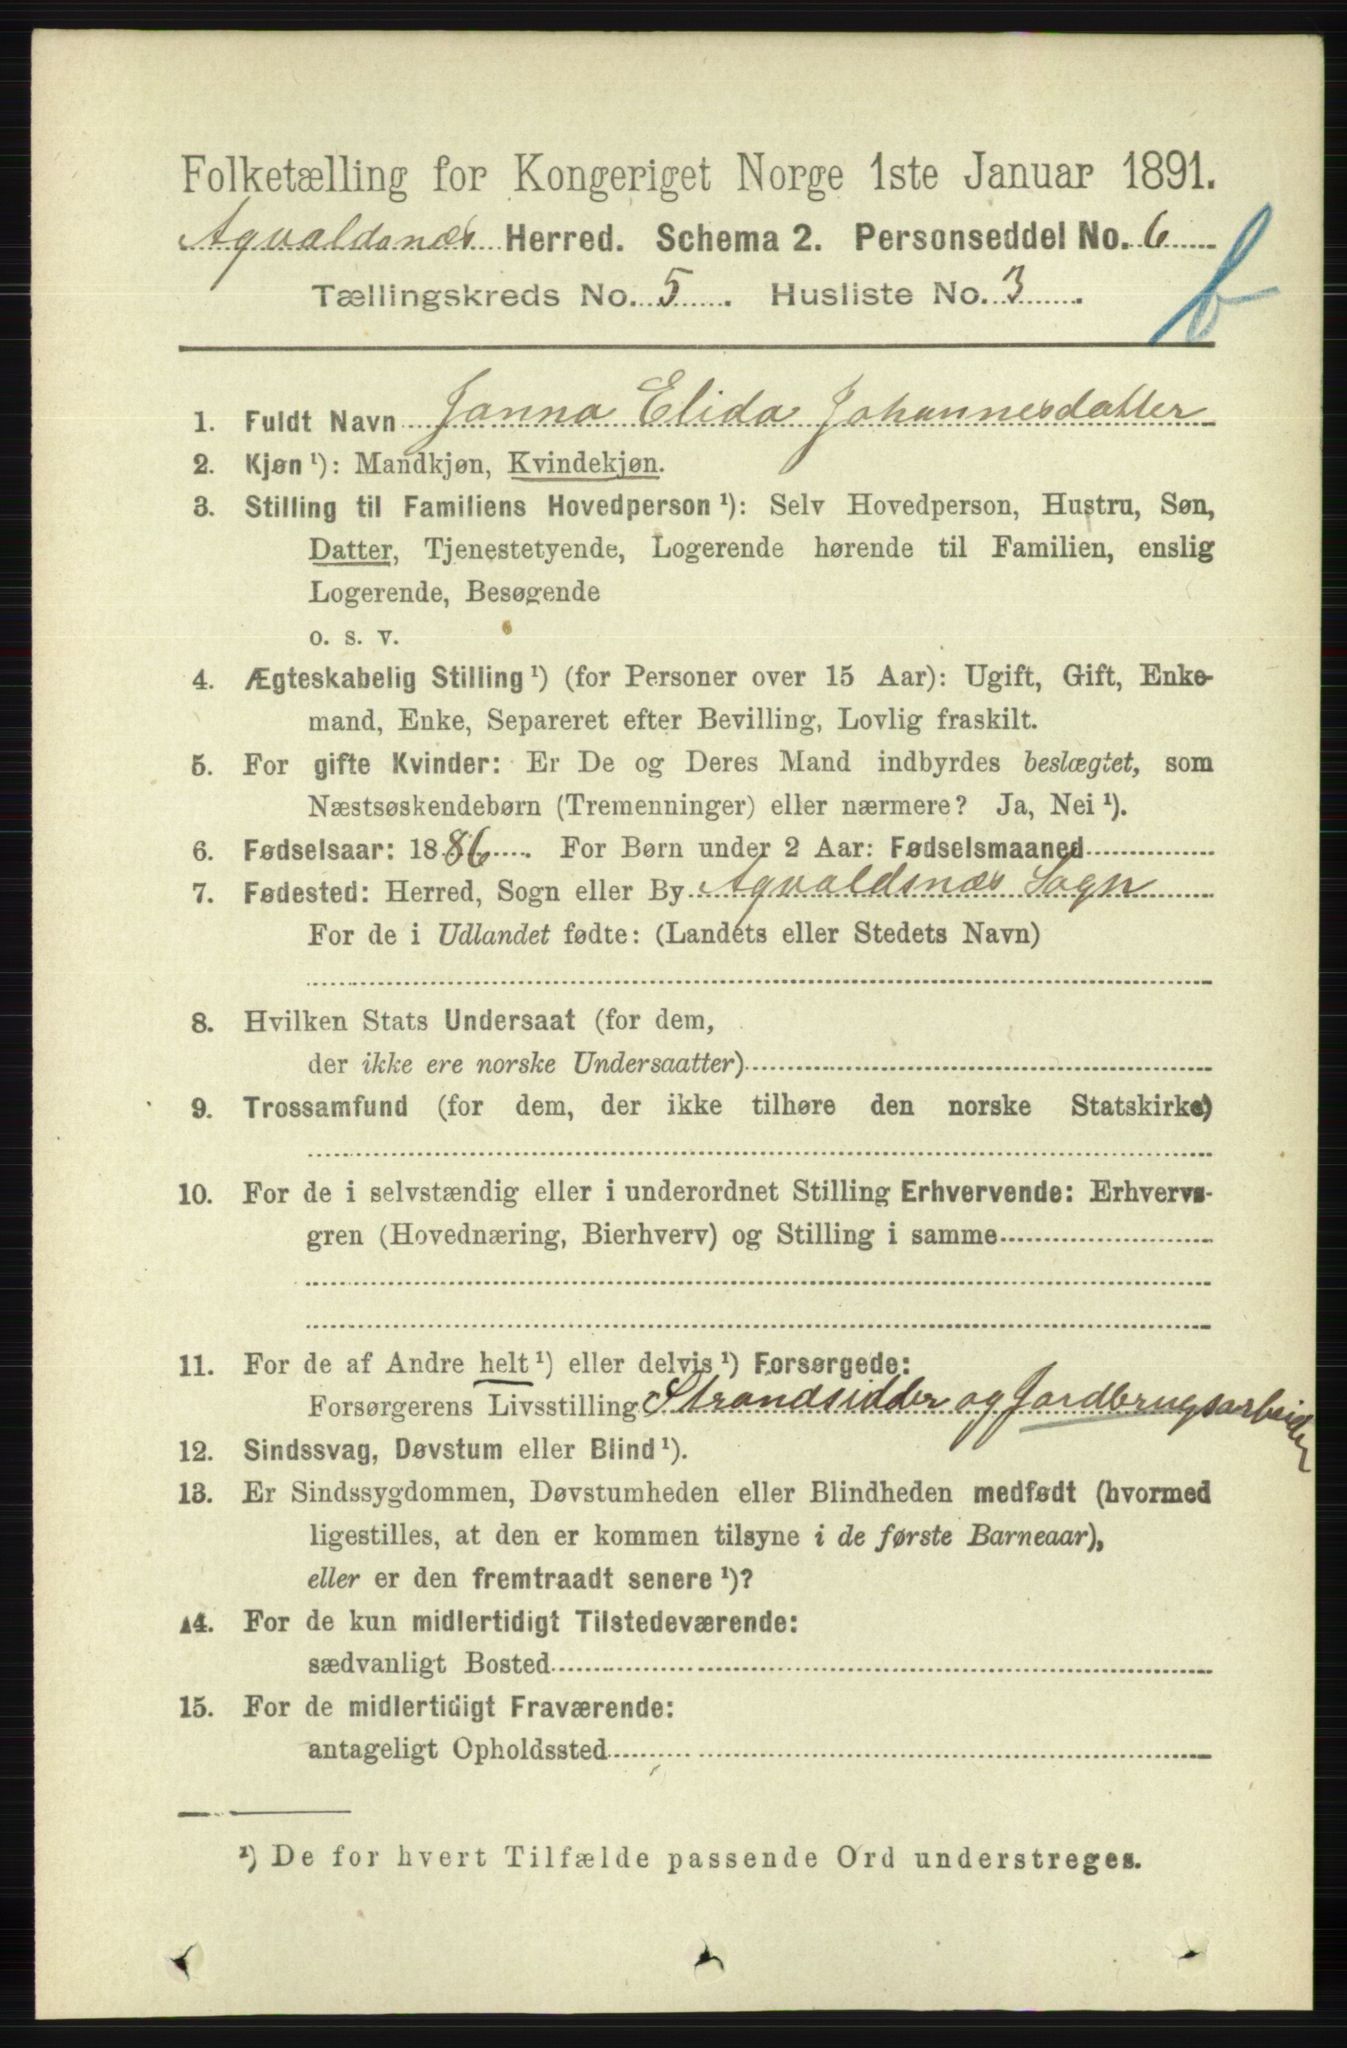 Folketælling for Kongeriget Norge 1ste Januar 1891.
Agvaldsnæs Herred. Schema 2. Personseddel No. 6
Tællingskreds No. 5. Husliste No. 3.
b
1. Fuldt Navn Janna Elida Johannesdatter
2. Kjøn ¹): Mandkjøn, Kvindekjøn.
3. Stilling til Familiens Hovedperson ¹): Selv Hovedperson, Hustru, Søn,
Datter, Tjenestetyende, Logerende hørende til Familien, enslig
Logerende, Besøgende
o. s. v.
4. Ægteskabelig Stilling ¹) (for Personer over 15 Aar): Ugift, Gift, Enke-
mand, Enke, Separeret efter Bevilling, Lovlig fraskilt.
5. For gifte Kvinder: Er De og Deres Mand indbyrdes beslægtet, som
Næstsøskendebørn (Tremenninger) eller nærmere? Ja, Nei ¹).
6. Fødselsaar: 1886. For Børn under 2 Aar: Fødselsmaaned
7. Fødested: Herred, Sogn eller By Agvaldsnæs Sogn
For de i Udlandet fødte: (Landets eller Stedets Navn)
8. Hvilken Stats Undersaat (for dem,
der ikke ere norske Undersaatter)
9. Trossamfund (for dem, der ikke tilhøre den norske Statskirke)
10. For de i selvstændig eller i underordnet Stilling Erhvervende: Erhvervs-
gren (Hovednæring, Bierhverv) og Stilling i samme
11. For de af Andre helt ¹) eller delvis ¹) Forsørgede:
Forsørgerens Livsstilling Strandsidder og Jordbrugsarbeider
12. Sindssvag, Døvstum eller Blind ¹).
13. Er Sindssygdommen, Døvstumheden eller Blindheden medfødt (hvormed
ligestilles, at den er kommen tilsyne i de første Barneaar),
eller er den fremtraadt senere ¹)?
14. For de kun midlertidigt Tilstedeværende:
sædvanligt Bosted
15. For de midlertidigt Fraværende:
antageligt Opholdssted
¹) De for hvert Tilfælde passende Ord understreges.